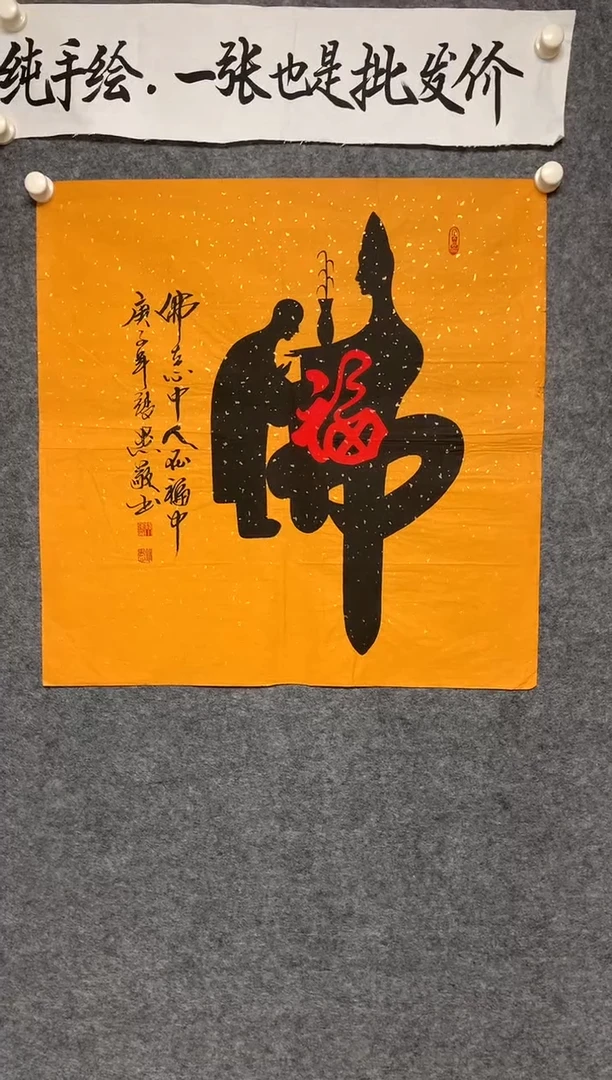 纯手绘.一张也是批发价
福
佛
佛在心中人在福中
庚子年张墨敬书